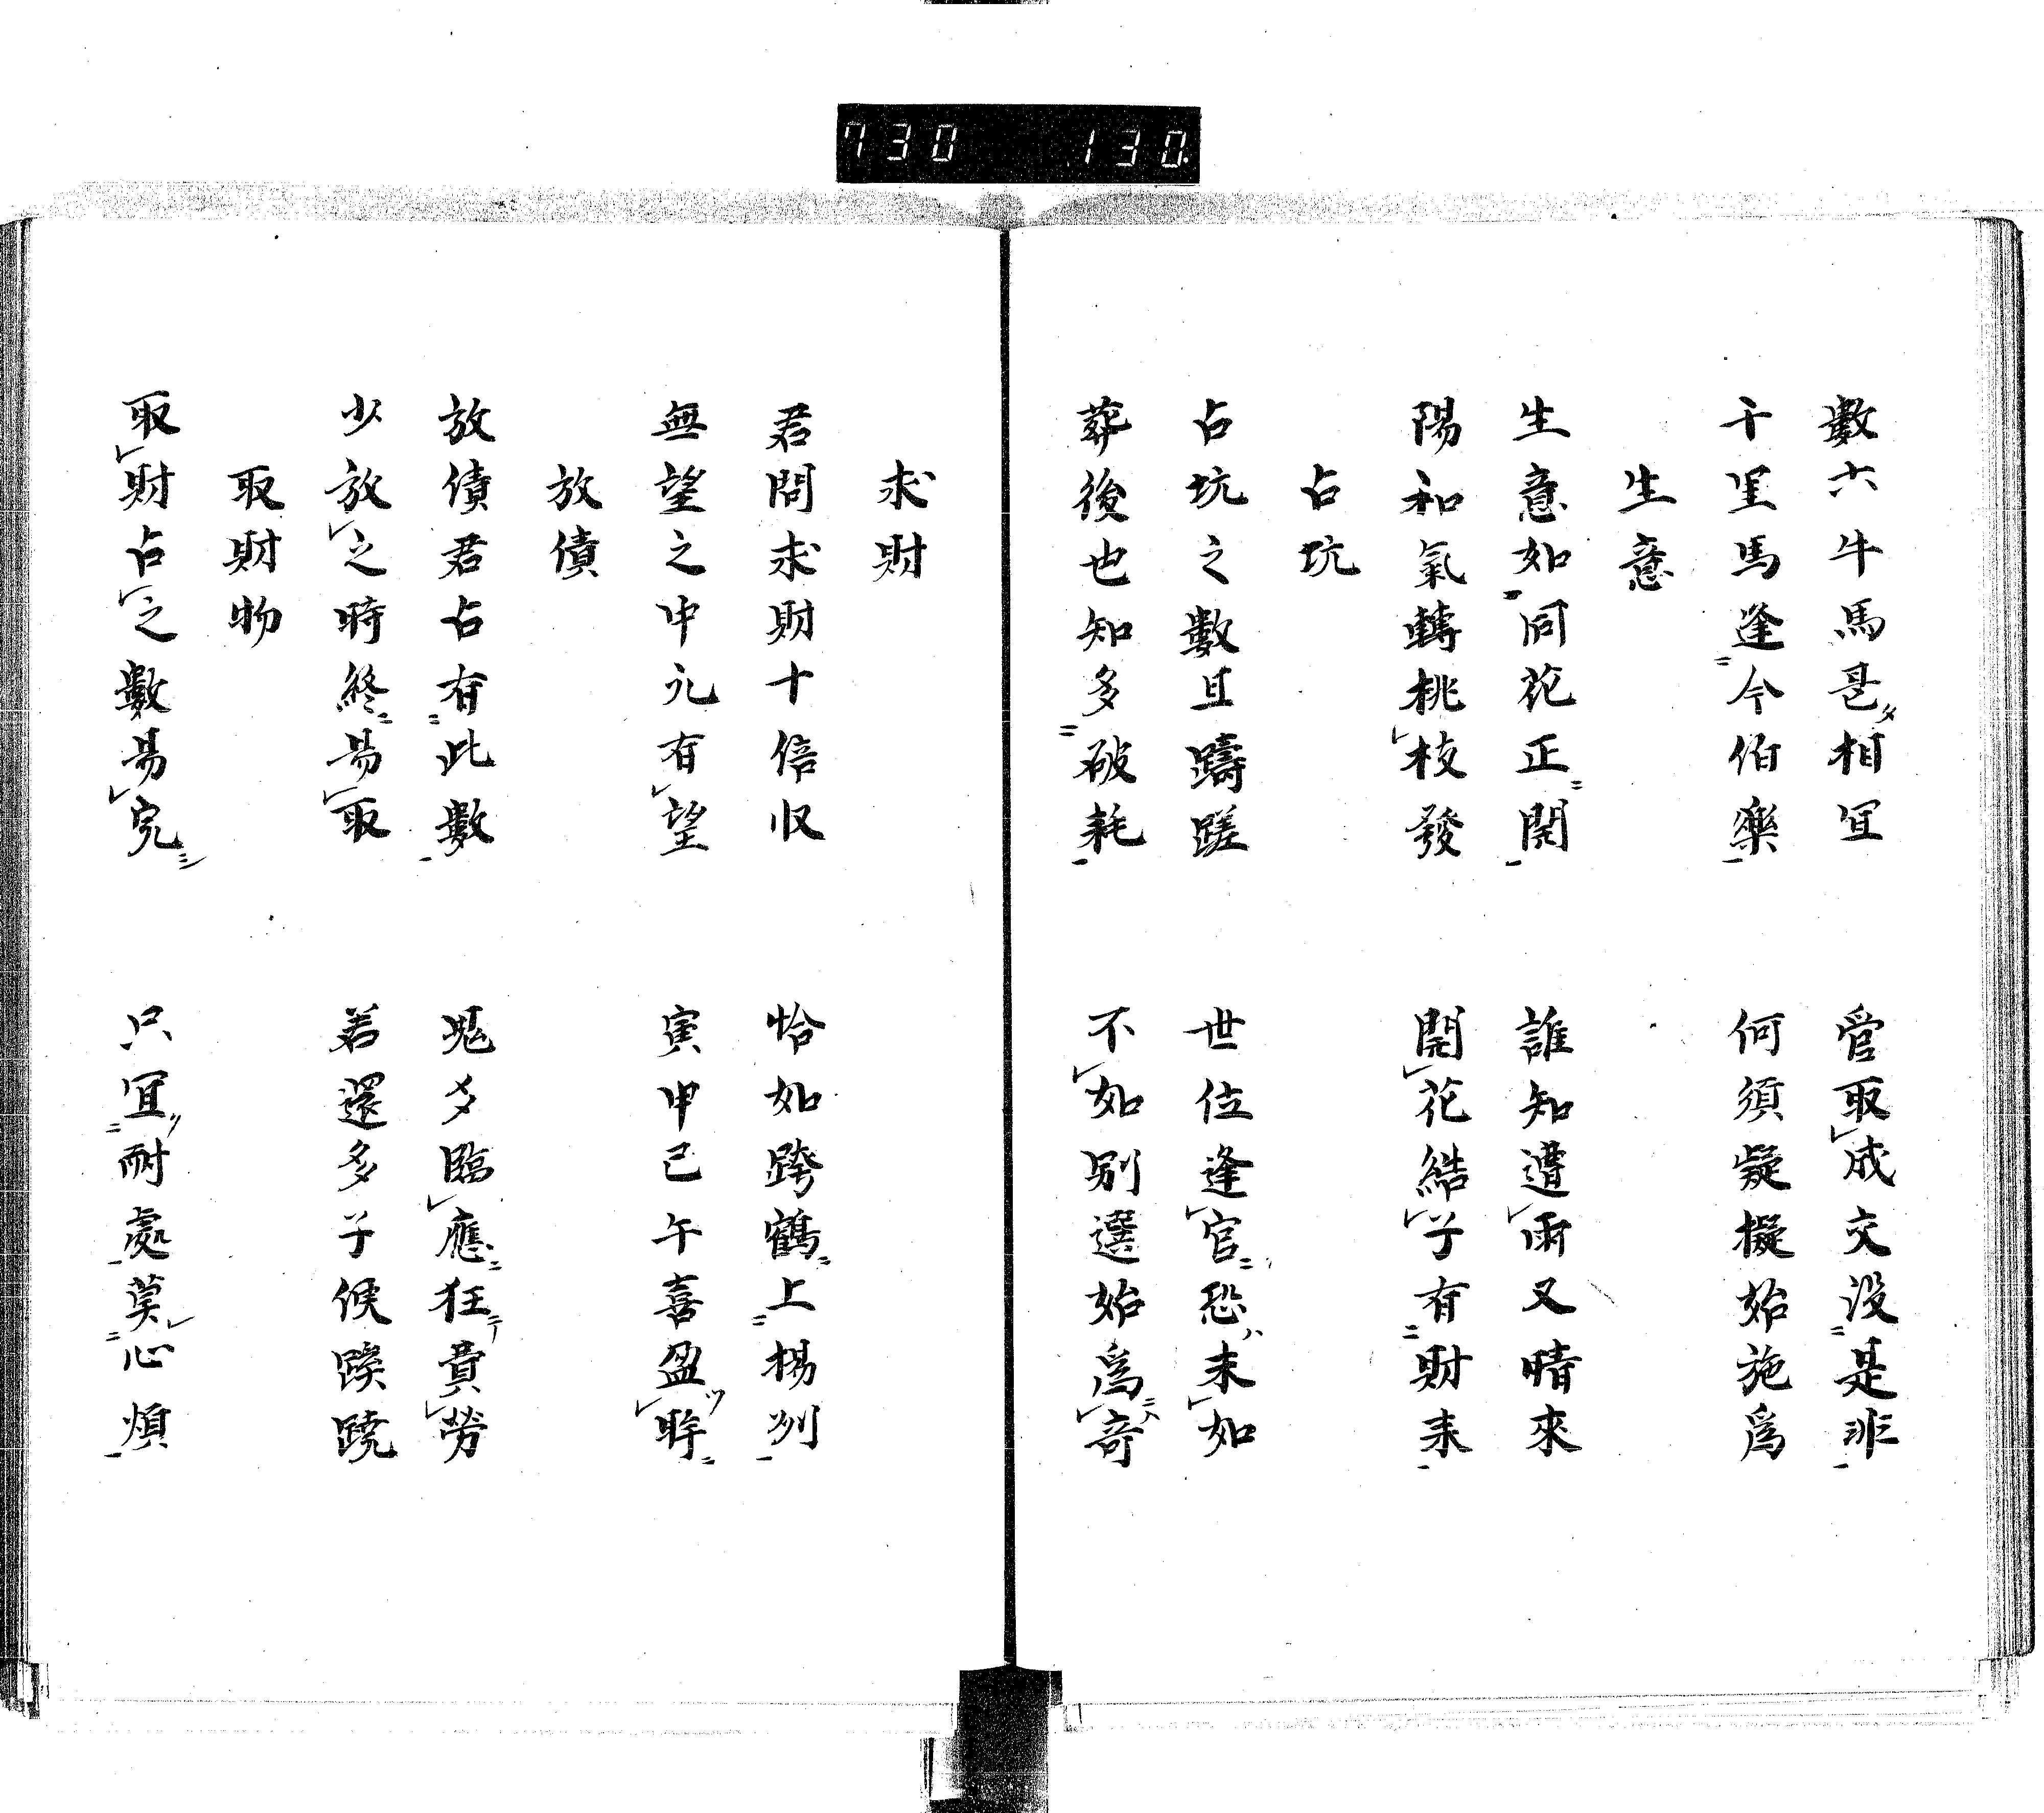 730 130
數六牛馬是相宜 管取成交没是非
千里馬逢今伯樂 何須疑擬始施爲
生意
生意如同花正開 誰知遭雨又晴來
陽和氣轉桃枝發 開花結子有財来
占坑
占坑之數且躊蹉 世位逢官恐未如
葬後也知多破耗 不如別選始爲奇
求財
君問求財十倍収 恰如跨鶴上楊州
無望之中元有望 寅申巳午喜盈眸
放債
放債君占有此數 鬼多臨應狂費勞
少放之時終易取 若還多予候蹊蹺
取財物
取財占之數易完 只宜耐處莫心煩